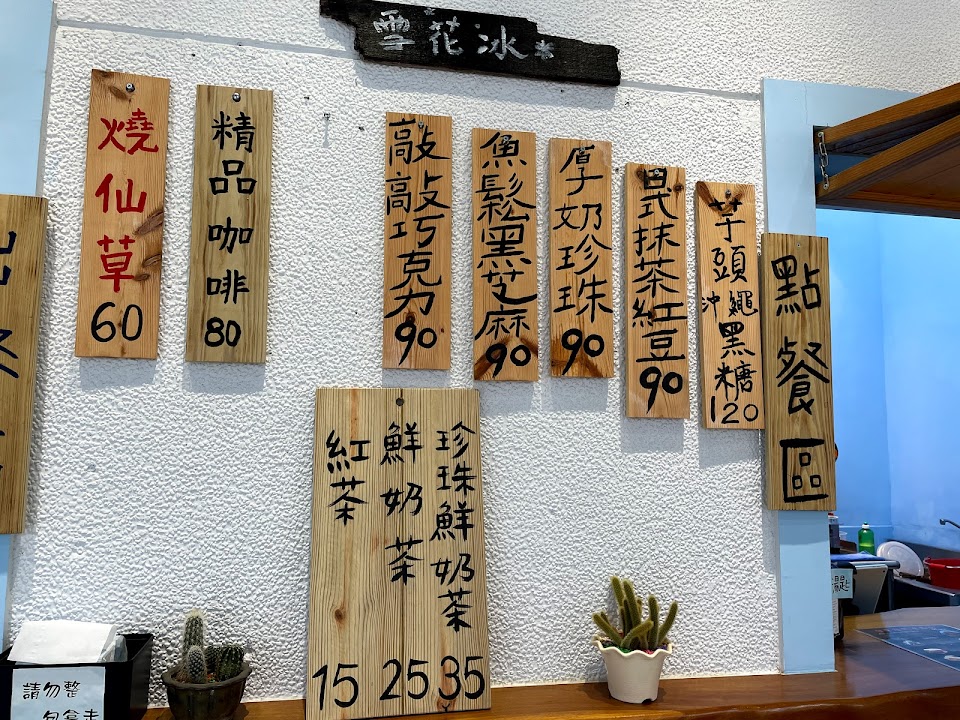 雪花冰
燒仙草
60
精品咖啡
80
敲敲巧克力
90
魚鬆黑芝麻
90
厚奶珍珠
90
日式抹茶紅豆
90
芋頭
沖繩
黑糖
120
點餐區
紅茶
15
鮮奶茶
25
珍珠鮮奶茶
35
請勿整
包拿走